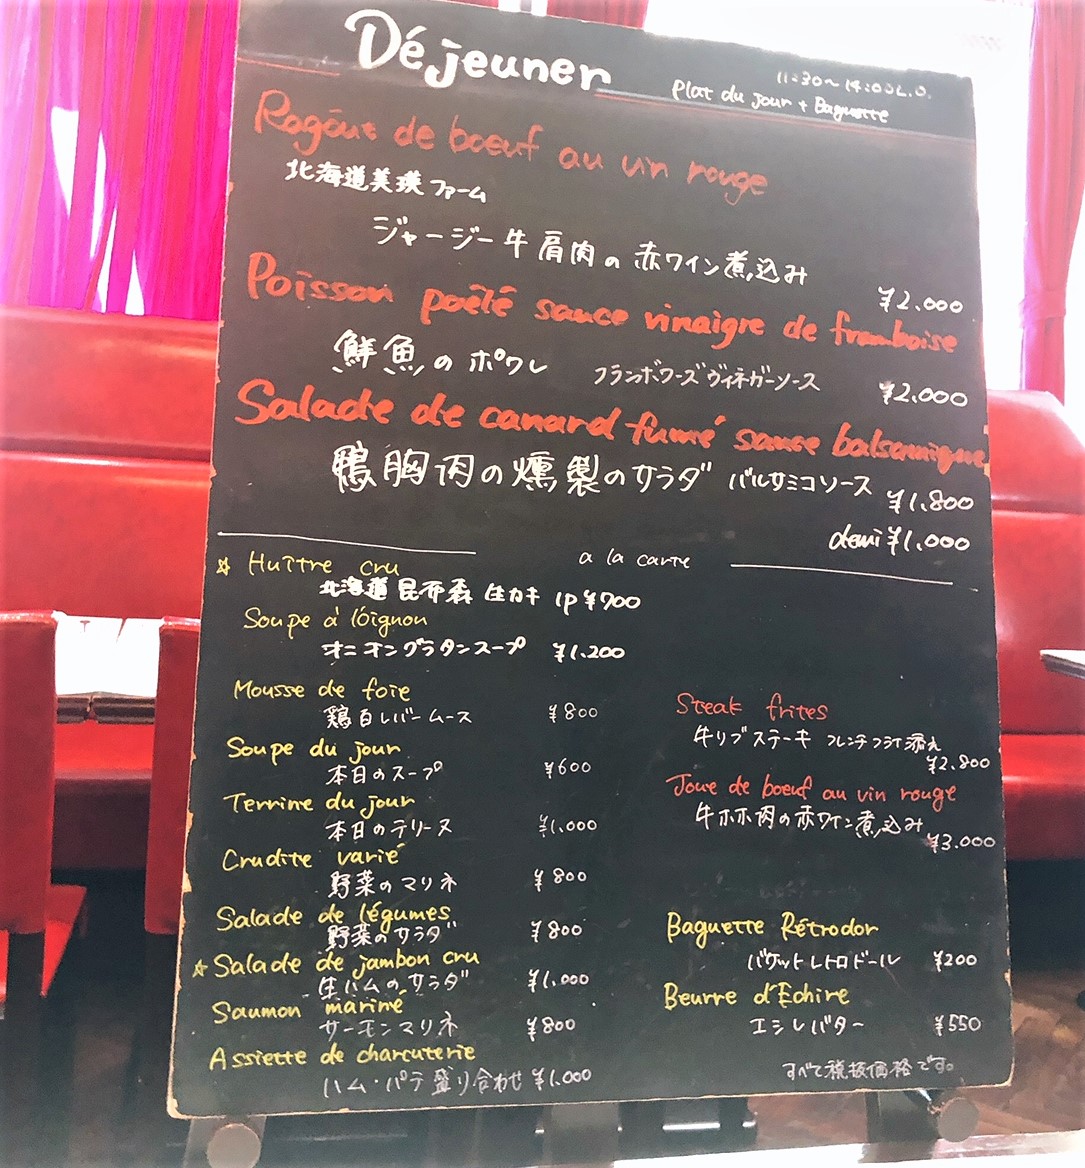 Déjeuner
11:30～14:00 L.O.
Plat du jour + Baguette
Ragôut de boeuf au vin rouge
北海道美瑛ファーム
ジャージー牛肩肉の赤ワイン煮込み
¥2.000
Poisson poêlé sauce vinaigre de framboise
鮮魚のポワレ フランボワーズヴィネガーソース ¥2.000
Salade de canard fumé sauce balsamique
鴨胸肉の燻製のサラダ バルサミコソース ¥1.800
demi ¥1.000
a la carte
☆ Huître cru
北海道 昆布森 生カキ 1p ¥700
Soupe à l'oignon
オニオングラタンスープ ¥1.200
Mousse de foie
鶏白レバームース ¥800
Soupe du jour
本日のスープ ¥600
Terrine du jour
本日のテリーヌ ¥1.000
Crudite varié
野菜のマリネ ¥800
Salade de légumes
野菜のサラダ ¥800
☆ Salade de jambon cru
生ハムのサラダ ¥1.000
Saumon mariné
サーモンマリネ ¥800
Assiette de charcuterie
ハム・パテ盛り合わせ ¥1.000
Steak frites
牛リブステーキ フレンチフライ添え
¥2.800
Joue de boeuf au vin rouge
牛ホホ肉の赤ワイン煮込み
¥3.000
Baguette Rétrodor
バゲットレトロドール ¥200
Beurre d'Echire
エシレバター ¥550
すべて税抜価格です。